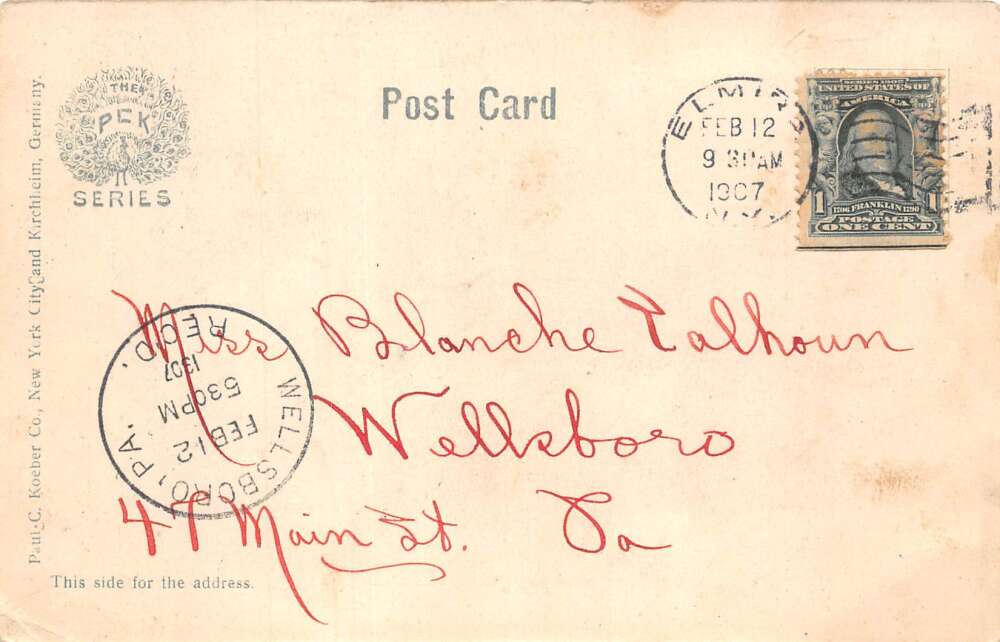 THE
PCK
SERIES
Post Card
ELMIRA
FEB 12
9 30 AM
1907
N.Y.
SERIES 1902
UNITED STATES OF
AMERICA
1 1706 FRANKLIN 1790 1
POSTAGE
ONE CENT
Paul C. Koeber Co., New York City and Kirchheim, Germany.
Miss Blanche Calhoun
Wellsboro
47 Main St. Pa
WELLSBORO, PA.
FEB 12
5 30 PM
1907
REC'D.
This side for the address.